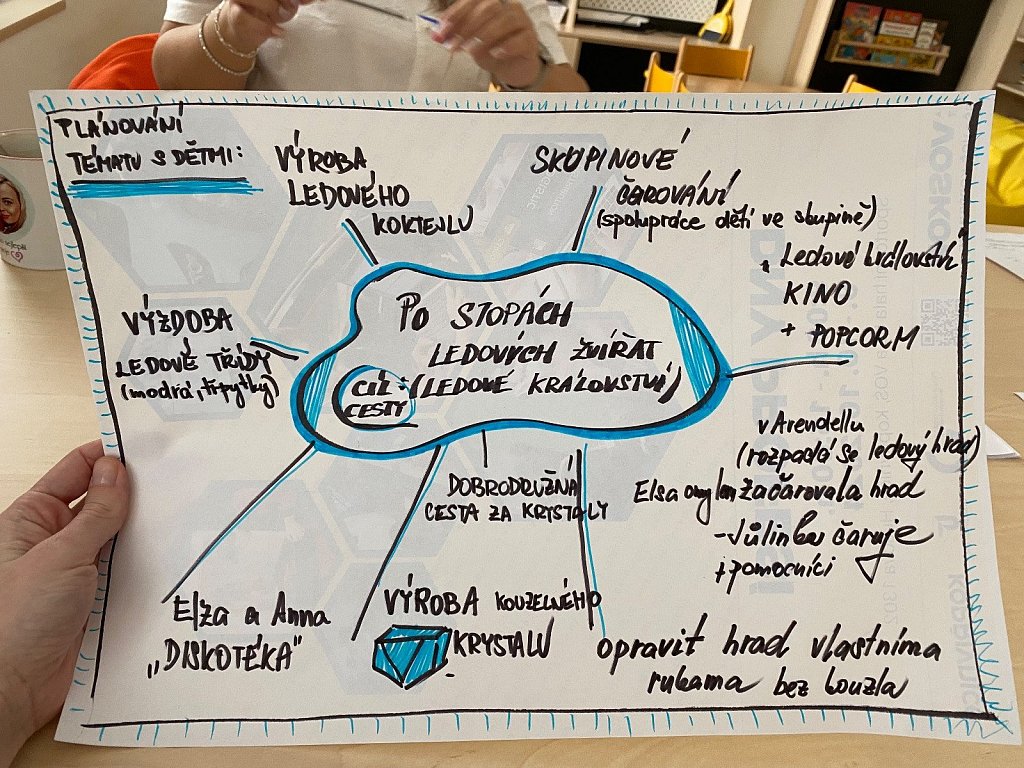 PLÁNOVÁNÍ
TÉMATU S DĚTMI:
VÝROBA
LEDOVÉHO
KOKTEJLU
SKUPINOVÉ
ČAROVÁNÍ
(spolupráce dětí ve skupině)
Ledové království
KINO
+ POPCORM
VÝZDOBA
LEDOVÉ TŘÍDY
(modrá, třpytky)
PO STOPÁCH
LEDOVÝCH ZVÍŘAT
CÍL : (LEDOVÉ KRÁLOVSTVÍ)
CESTY
v Arendellu
(rozpadá se ledový hrad)
Elsa omylem začarovala hrad
- Júlinka čaruje
+ pomocníci
DOBRODRUŽNÁ
CESTA ZA KRYSTALY
Elza a Anna
„DISKOTÉKA"
VÝROBA KOUZELNÉHO
KRYSTALU
opravit hrad vlastníma
rukama bez kouzla